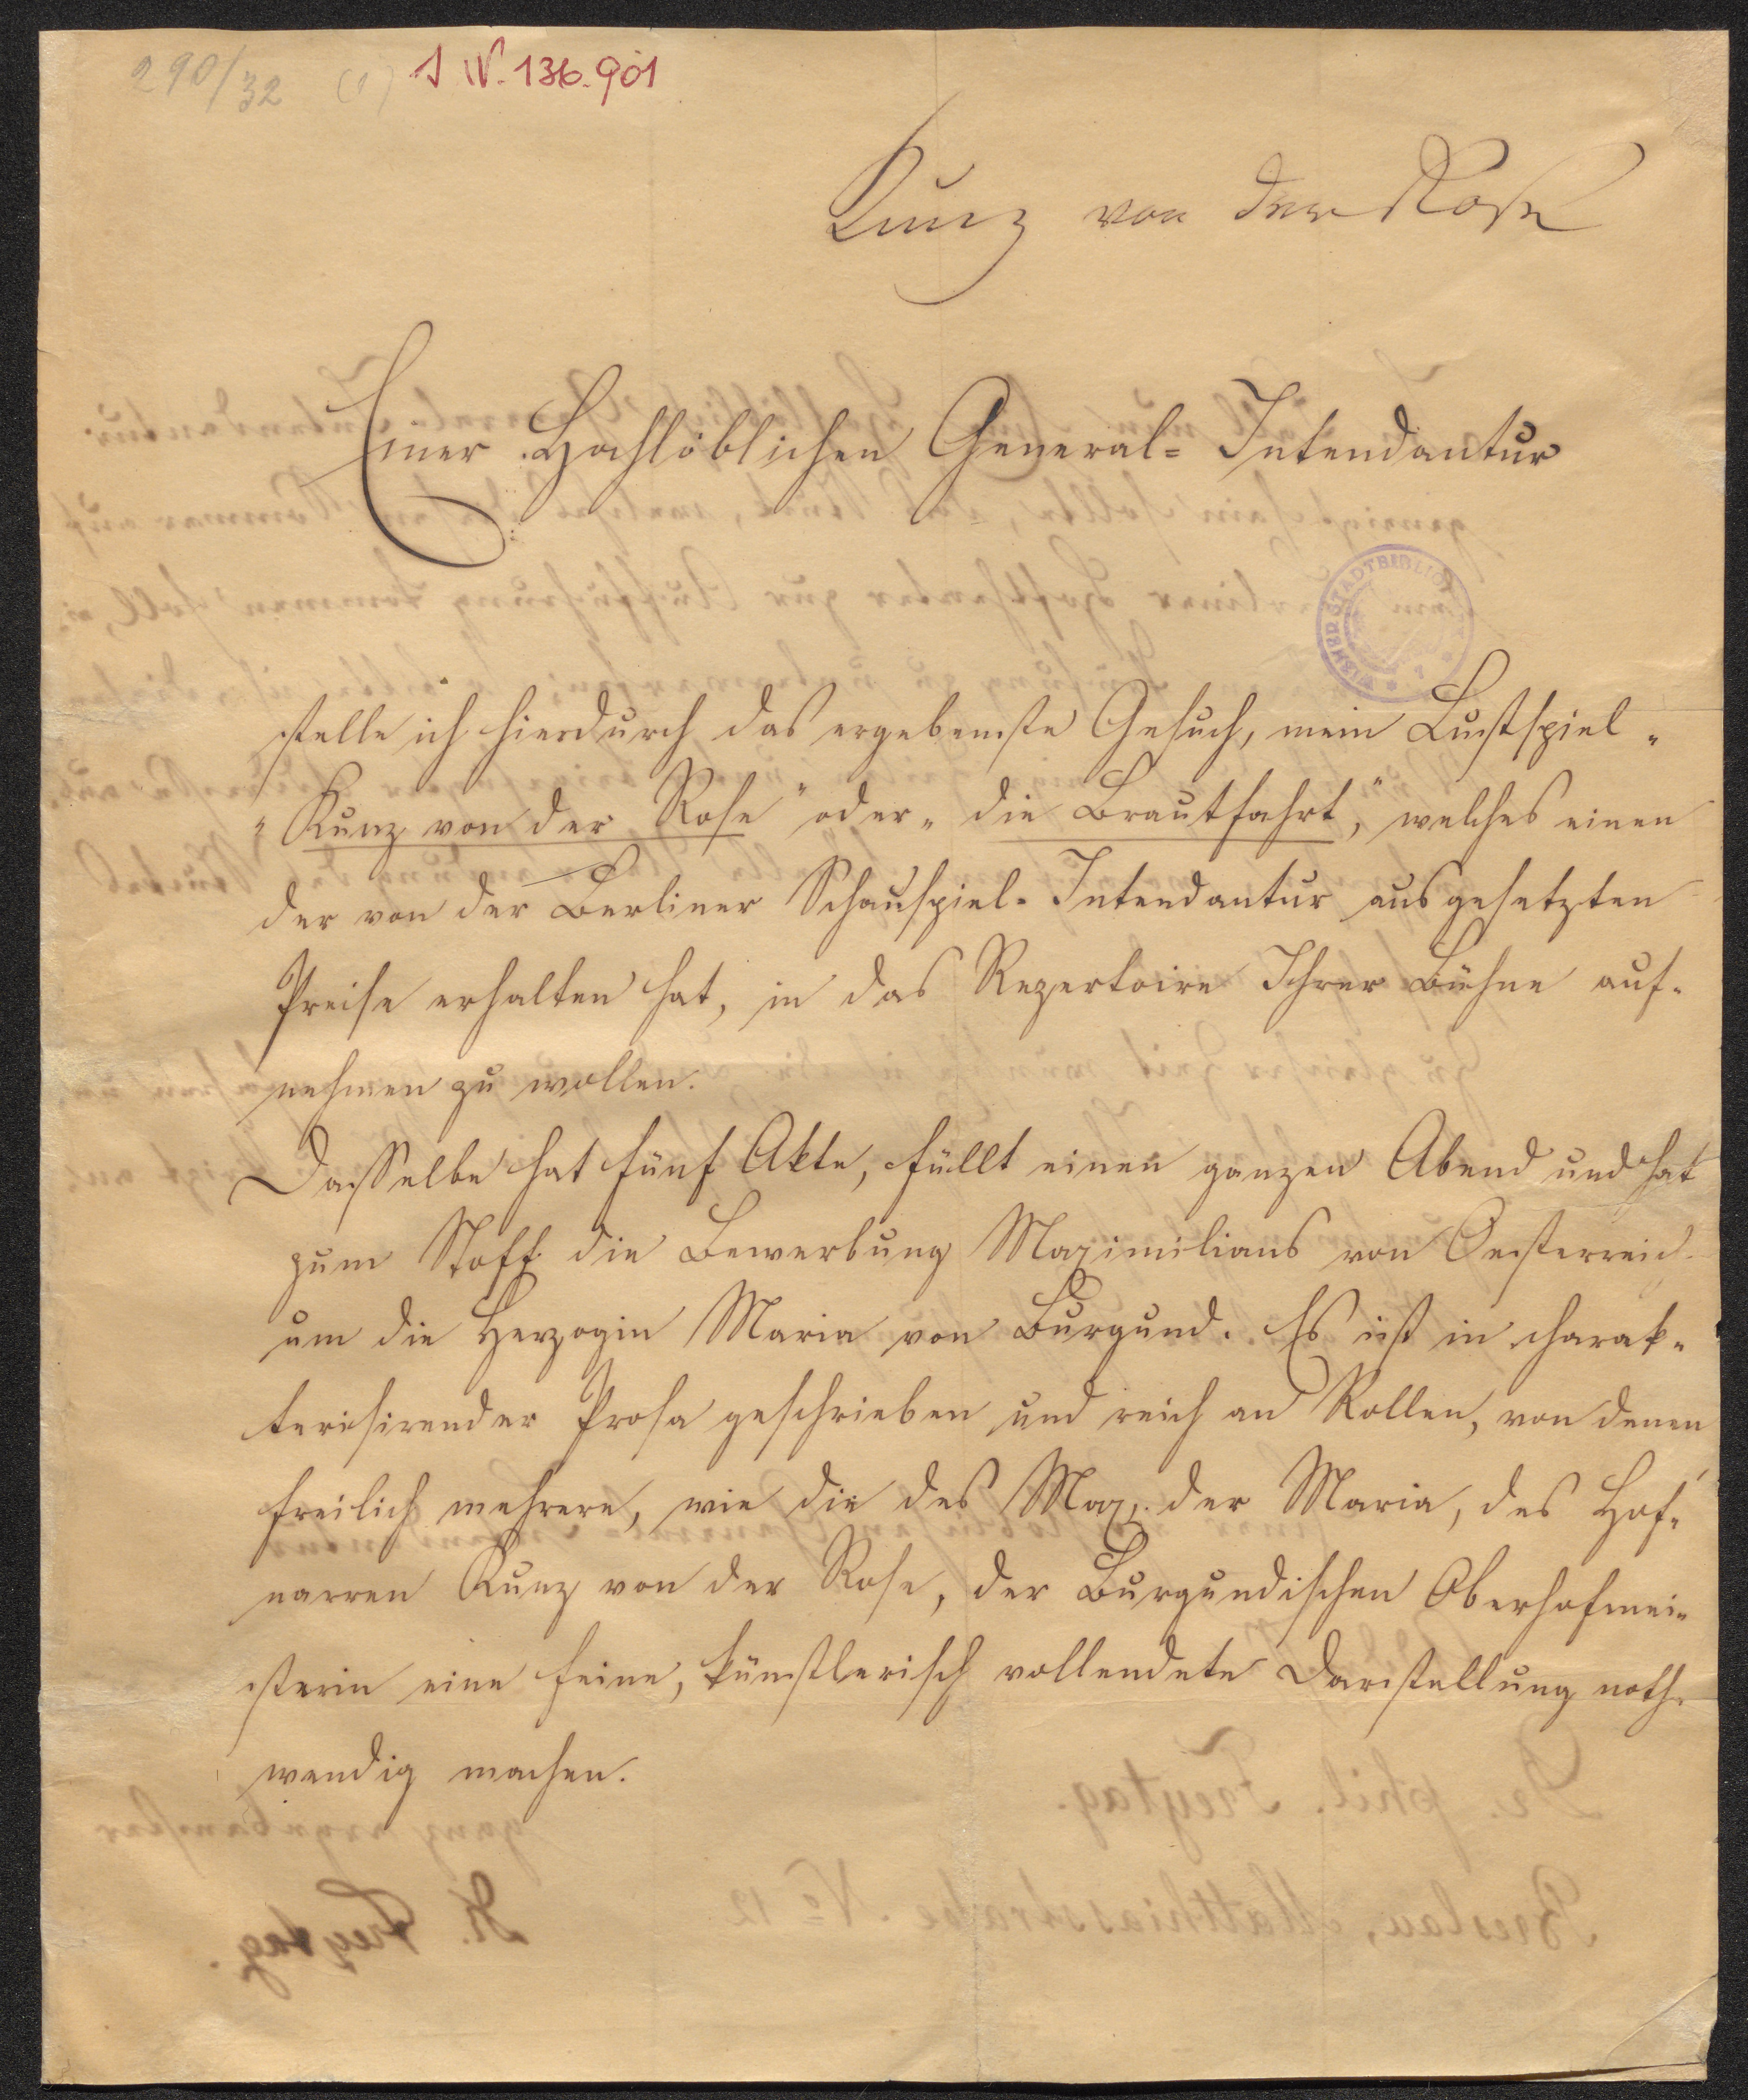 290/32 (1) I N. 136.901
Kunz von der Rose
Einer Hochlöblichen General-Intendantur
WIENER STADTBIBLIOTHEK
stelle ich hierdurch das ergebenste Gesuch, mein Lustspiel „
„Kunz von der Rose" oder „die Brautfahrt," welches einen
der von der Berliner Schauspiel-Intendantur ausgesetzten
Preise erhalten hat, in das Repertoire Ihrer Bühne auf-
nehmen zu wollen.
Dasselbe hat fünf Akte, füllt einen ganzen Abend und hat
zum Stoff die Bewerbung Maximilians von Oesterreich
um die Herzogin Maria von Burgund. Es ist in charak-
terisirender Prosa geschrieben und reich an Rollen, von denen
freilich mehrere, wie die des Max, der Maria, des Hof-
narren Kunz von der Rose, der Burgundischen Oberhofmei-
sterin eine feine, künstlerisch vollendete Darstellung noth-
wendig machen.